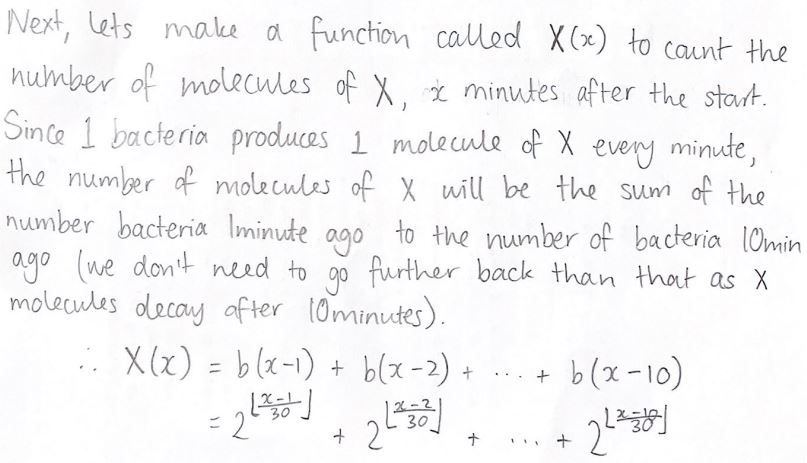 Next, lets make a function called X(x) to count the
number of molecules of X, x minutes after the start.
Since 1 bacteria produces 1 molecule of X every minute,
the number of molecules of X will be the sum of the
number bacteria 1minute ago to the number of bacteria 10min
ago (we don't need to go further back than that as X
molecules decay after 10minutes).
∴ X(x) = b(x-1) + b(x-2) + ... + b(x-10)
= 2^⌊(x-1)/30⌋ + 2^⌊(x-2)/30⌋ + ... + 2^⌊(x-10)/30⌋